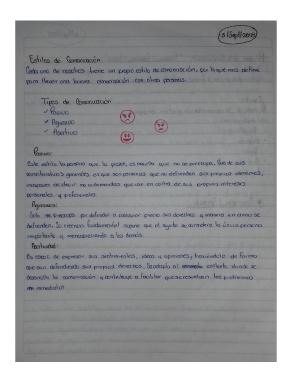 Estilos de Comunicación
Cada uno de nosotros tiene un propio estilo de comunicación, por lo que nos define
para llevar una buena comunicación con otras personas.
Tipos de Comunicación
✓ Pasivo
✓ Agresivo
✓ Asertivo
Pasivo:
Este estilo la persona que lo posee, es mucho que no se preocupa. Una de sus
características generales, es que son personas que no defienden sus propios derechos,
incapaces de decir no autonomadas que van en contra de sus propios intereses
personales y preferencias.
Agresivo:
Sólo se preocupa por defender a cualquier precio sus derechos y manera en como se
defienden. La creencia fundamental supone que el sujeto se considera la única persona
importante y menospreciando a los demás.
Asertividad:
Es capaz de expresar sus sentimientos, ideas y opiniones, haciéndolo de forma
que sus defendiendo sus propios derechos. Facilita al contexto donde se
desarrolla la comunicación y contribuye a facilitar que se resuelvan los problemas
inmediatos